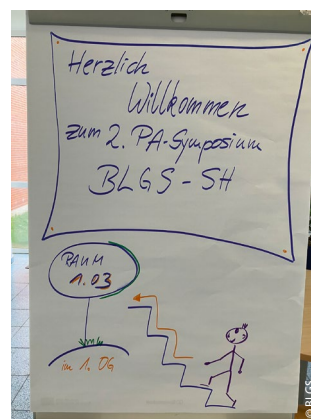 Herzlich
Willkommen
zum 2. PA-Symposium
BLGS - SH
RAUM
1.03
im 1. OG
©BLGS